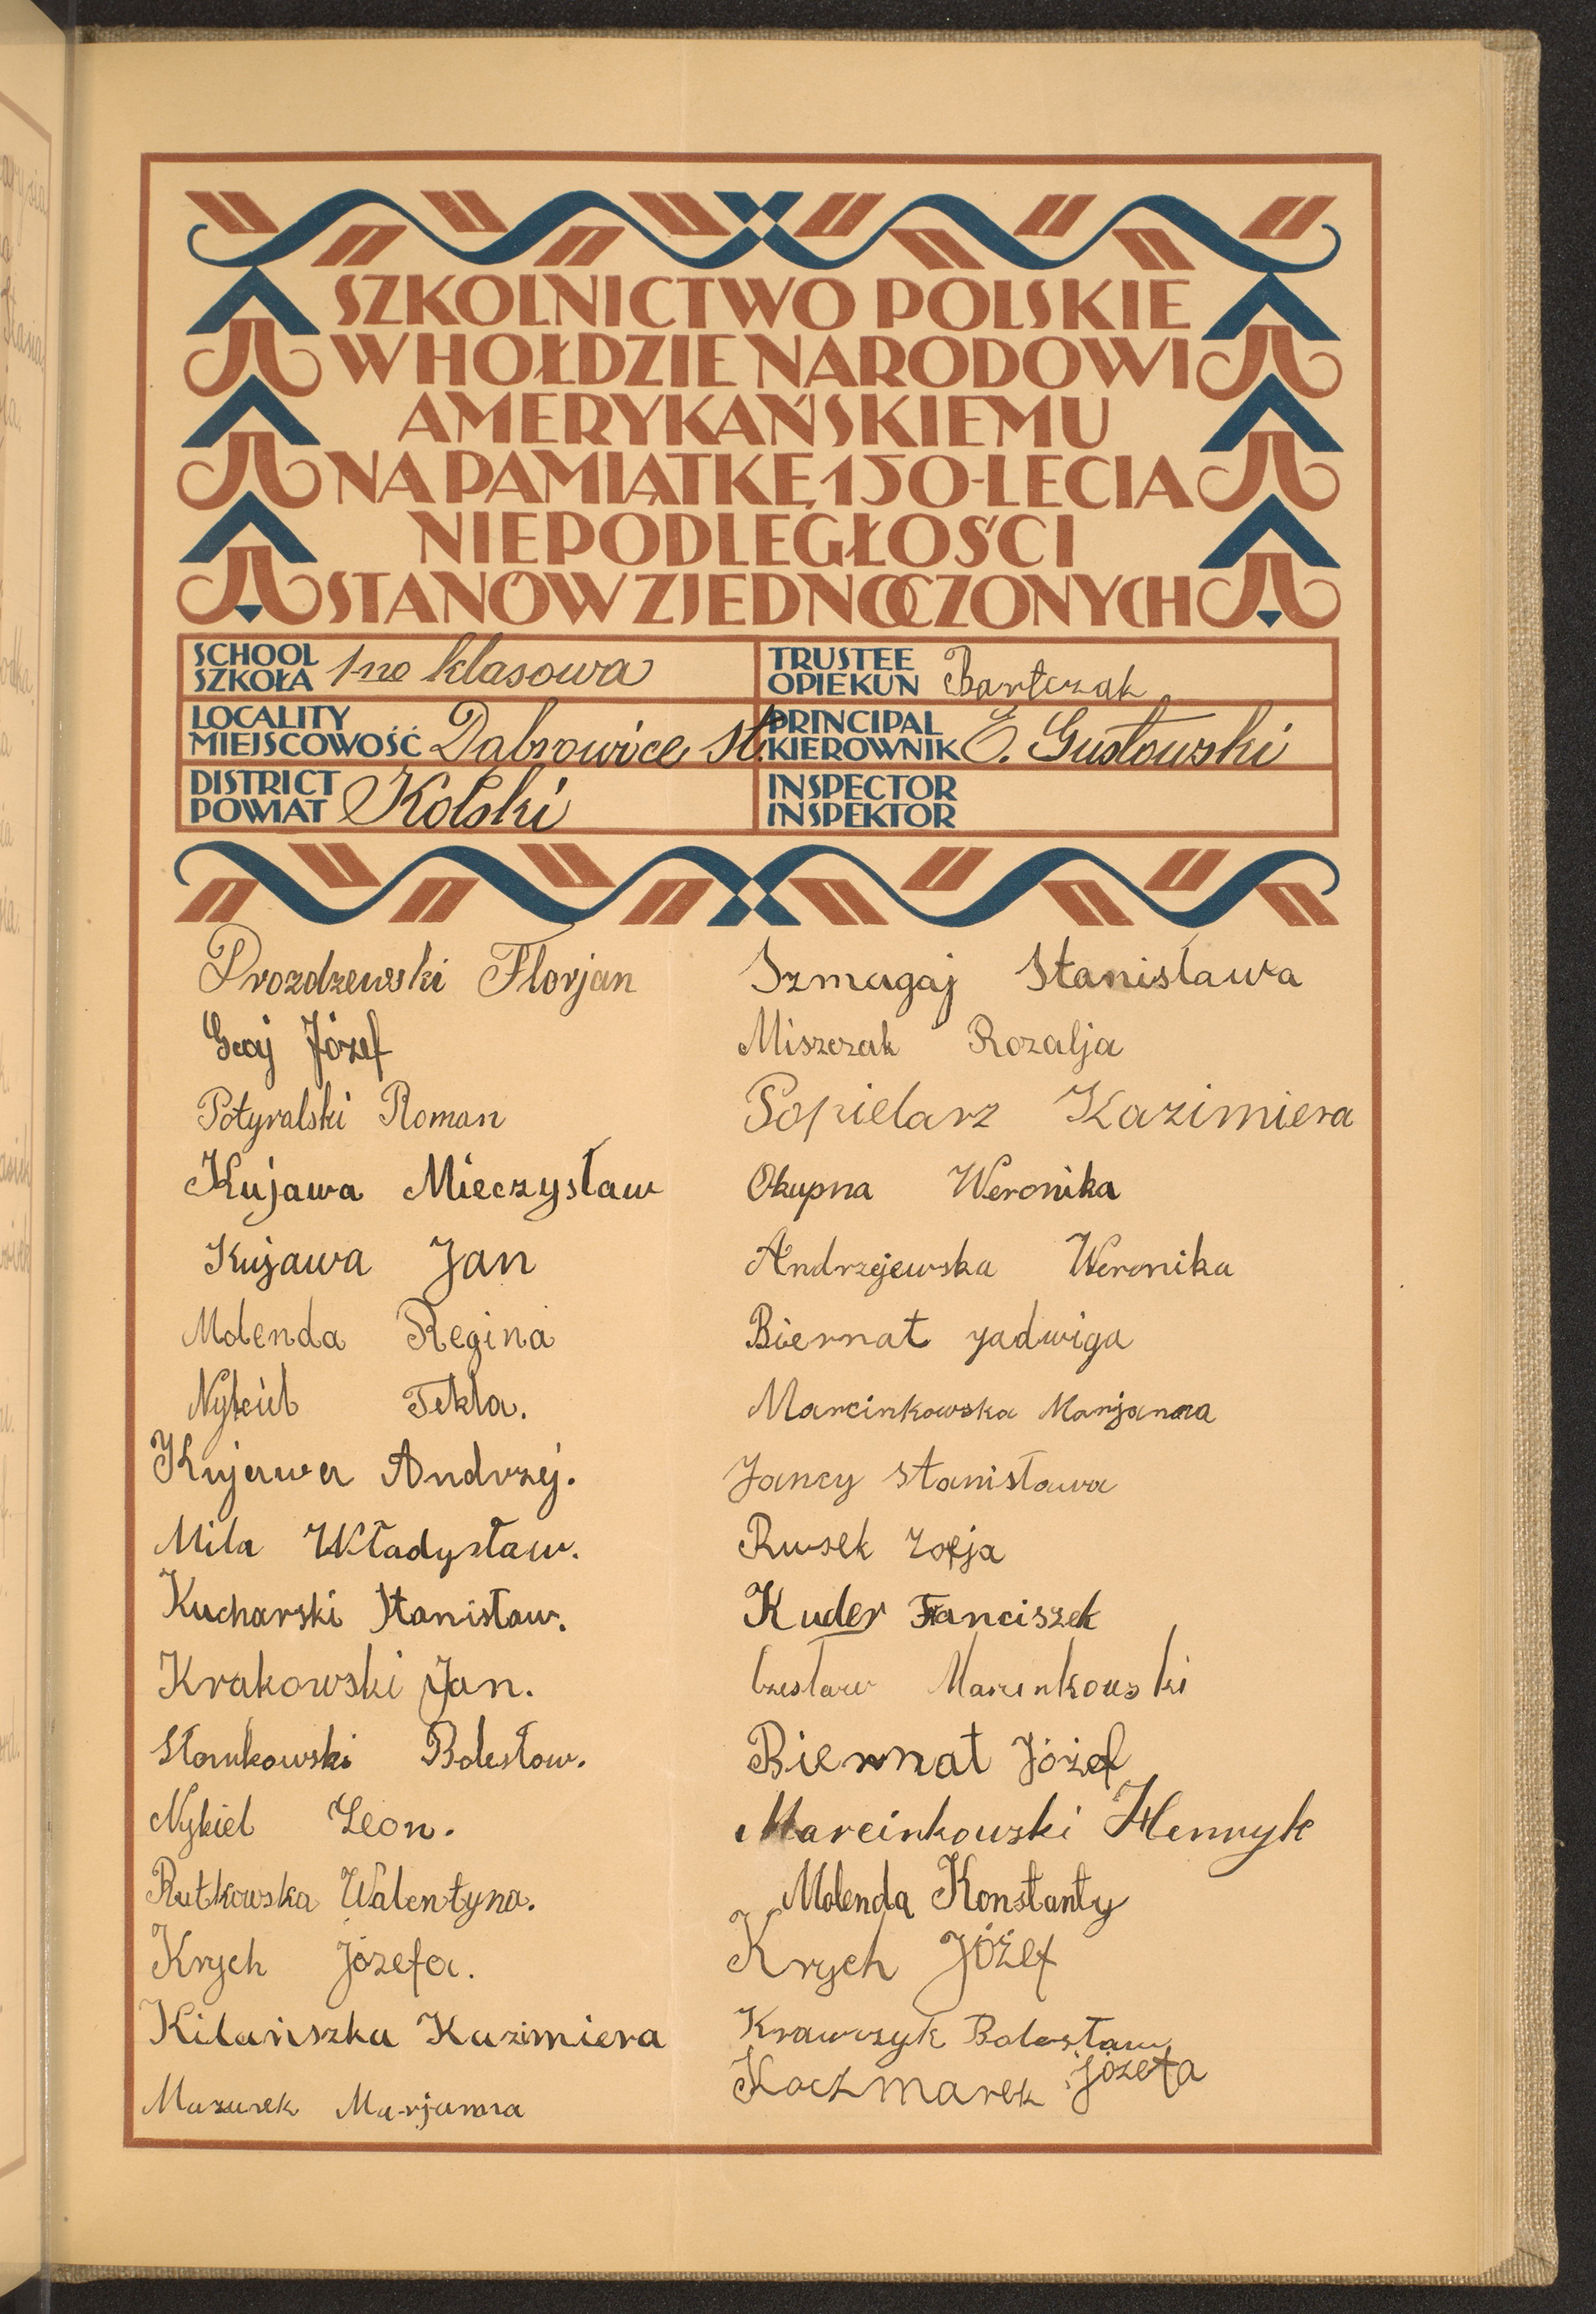 SZKOLNICTWO POLSKIE
W HOŁDZIE NARODOWI
AMERYKAŃSKIEMU
NA PAMIĄTKĘ 150-LECIA
NIEPODLEGŁOŚCI
STANÓW ZJEDNOCZONYCH
SCHOOL
SZKOŁA 1-no klasowa
TRUSTEE
OPIEKUN Bartczak
LOCALITY
MIEJSCOWOŚĆ Dabrowice st.
PRINCIPAL
KIEROWNIK E. Gustowski
DISTRICT
POWIAT Kolski
INSPECTOR
INSPEKTOR
Drozdzewski Florjan
Józef
Potyralski Roman
Kujawa Mieczysław
Kujawa Jan
Molenda Regina
Nykiel Tekla.
Kujawa Andrzej.
Mila Władysław.
Kucharski Stanisław.
Krakowski Jan.
Słomkowski Bolesław.
Nykiel Leon.
Rutkowska Walentyna.
Krych Józefa.
Kilańszka Kazimiera
Mazurek Marjanna
Szmagaj Stanisława
Miszczak Rozalja
Popielarz Kazimiera
Okupna Weronika
Andrzejewska Weronika
Biernat Jadwiga
Marcinkowska Marjanna
Jancy Stanisława
Rusek Zofja
Kuder Franciszek
Czesław Marcinkowski
Biernat Józef
Marcinkowski Henryk
Molenda Konstanty
Krych Józef
Krawczyk Bolesław
Kaczmarek Józefa